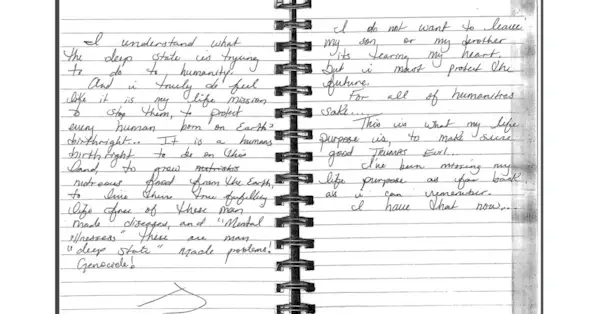 I understand what
the deep state is trying
to do to humanity.
And i truly do feel
like it is my life mission
to stop them, to protect
every human born on Earth's
birthright... It is a humans
birthright to be on this
land, to grow
nutrious food from the Earth,
to live there true fufilling
life free of these man
made diseases, and "Mental
illnesses" these are man
"deep state" made problems!
Genocide!
I do not want to leave
my son or my brother
its tearing my heart.
but i must protect the
future.
For all of humanitys
sake...
This is what my life
purpose is, to make sure
good TRIUMPHS Evil.
I've been missing my
life purpose as far back
as i can remember.
I have that now...